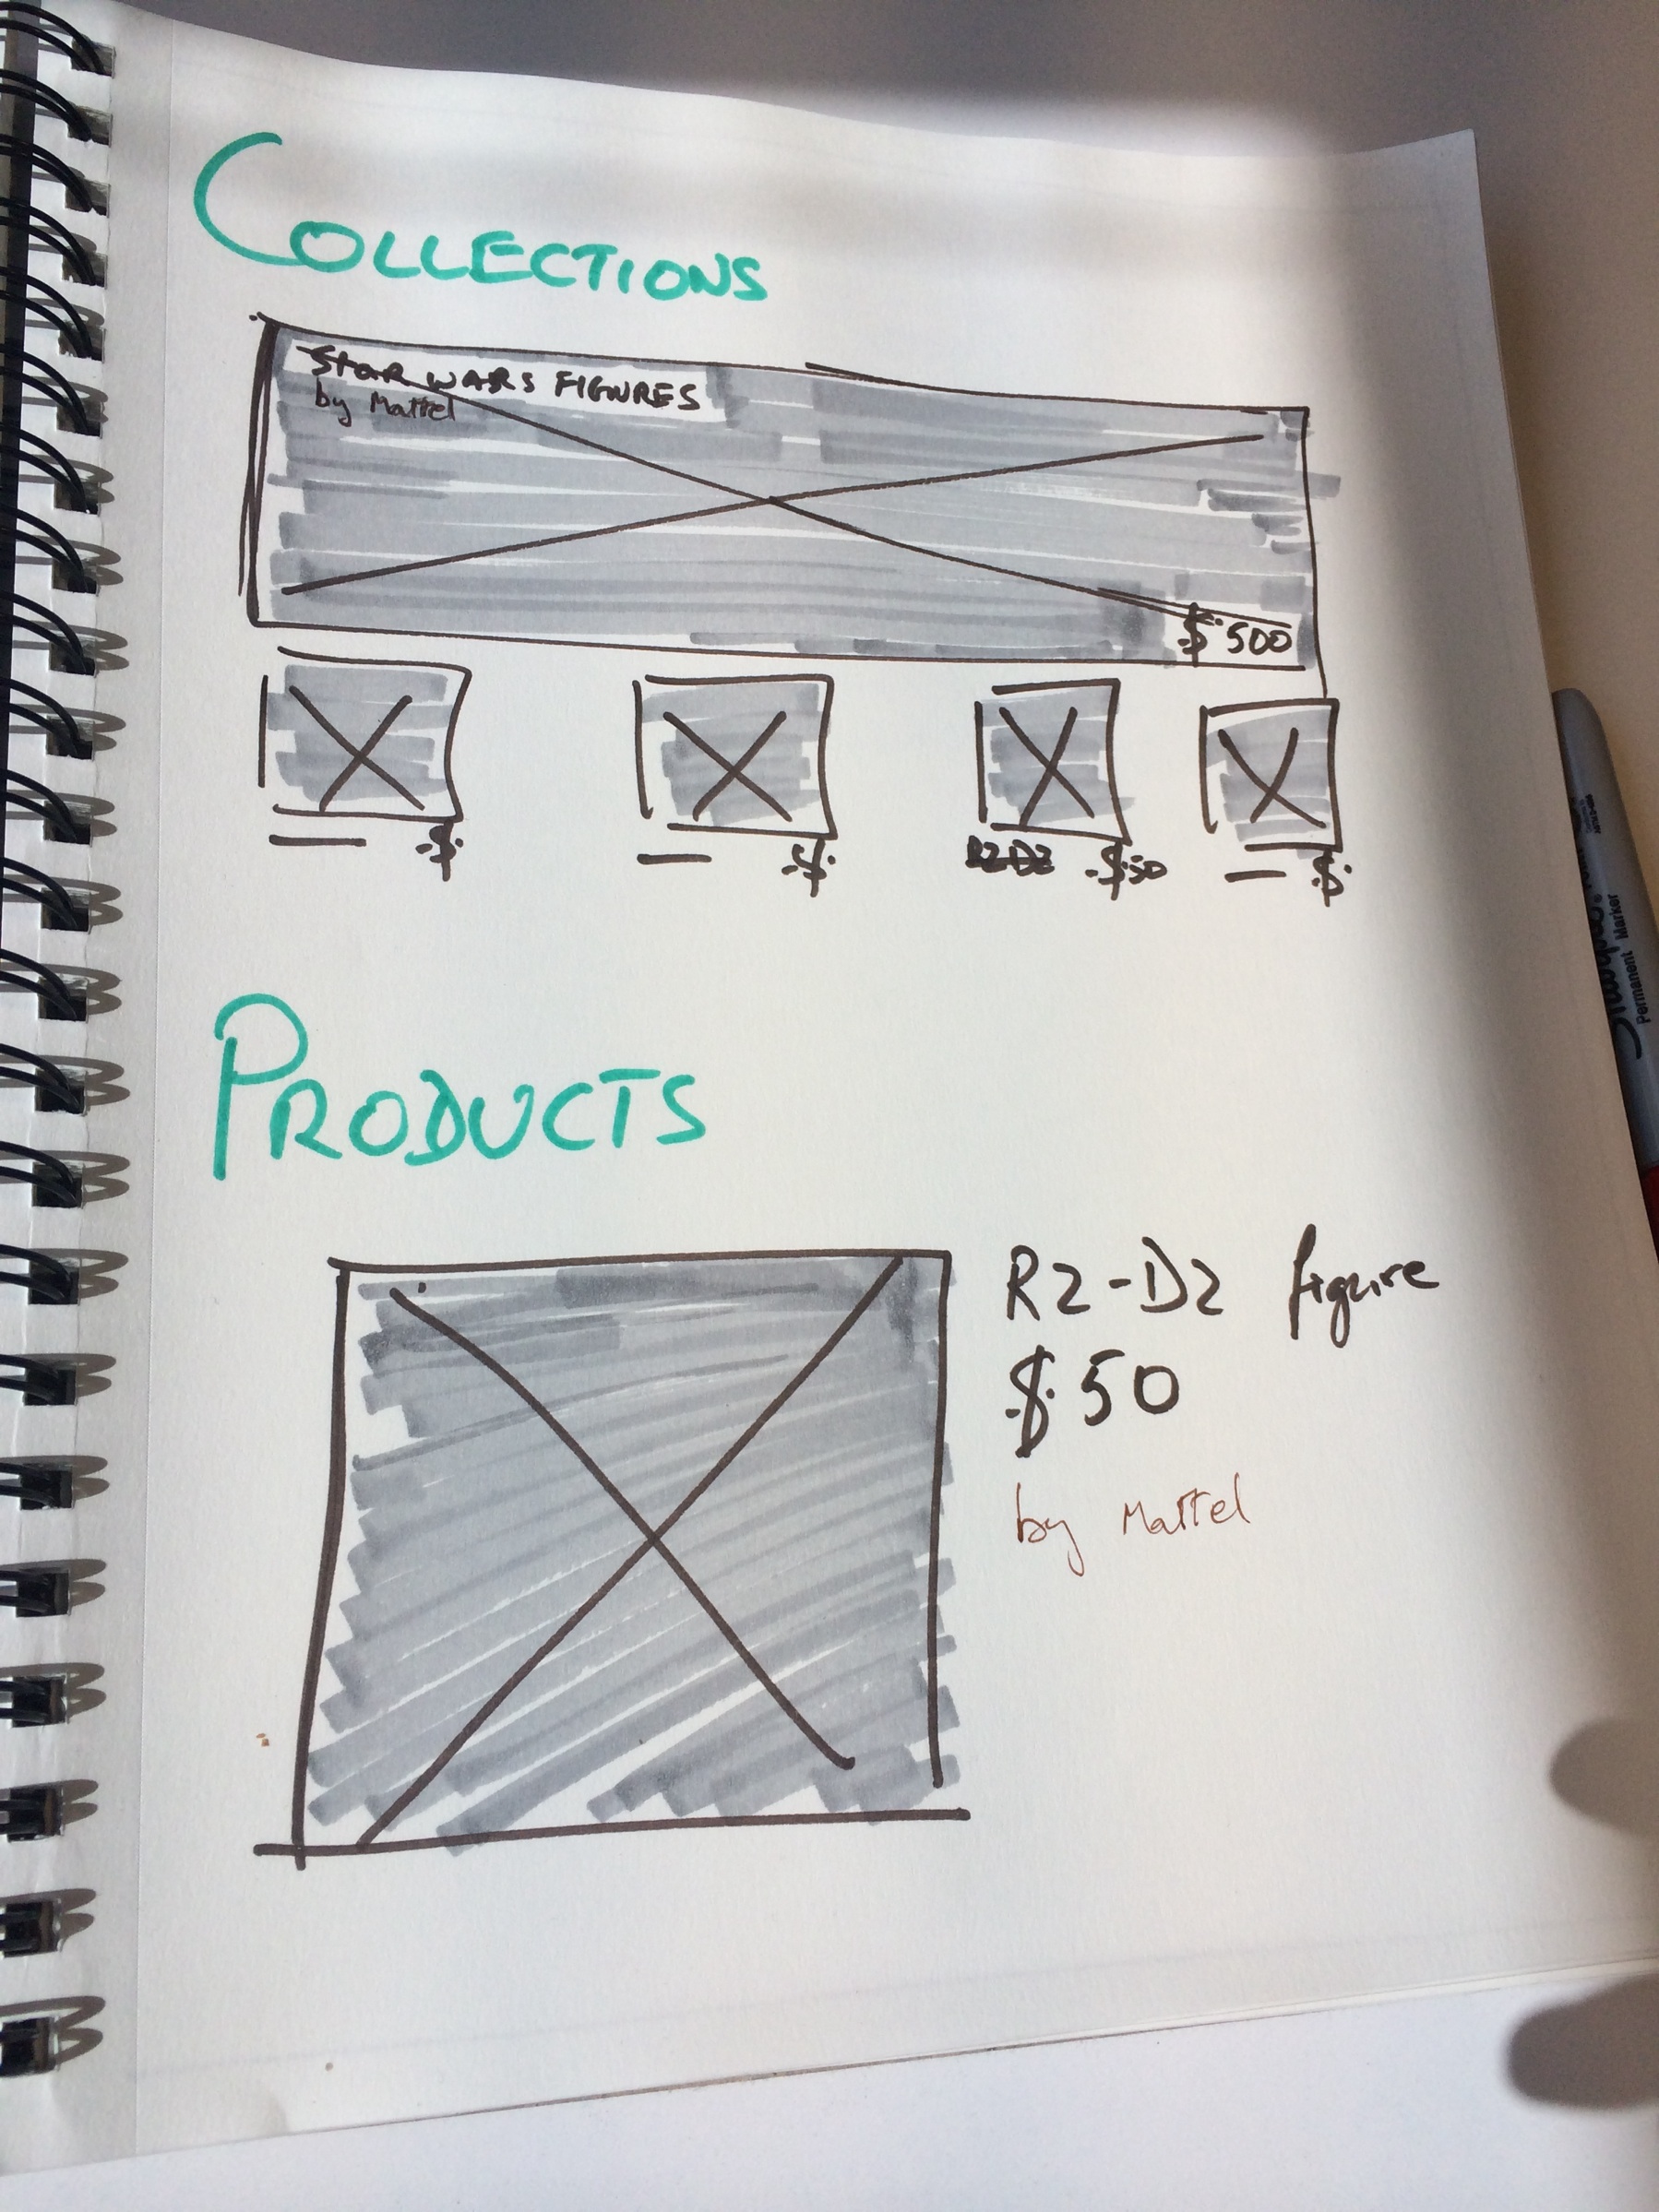 COLLECTIONS
STAR WARS FIGURES
by Mattel
$ 500
$
$
R2-D2 $50
$
PRODUCTS
R2-D2 figure
$50
by Mattel
Sharpie®
Permanent Marker